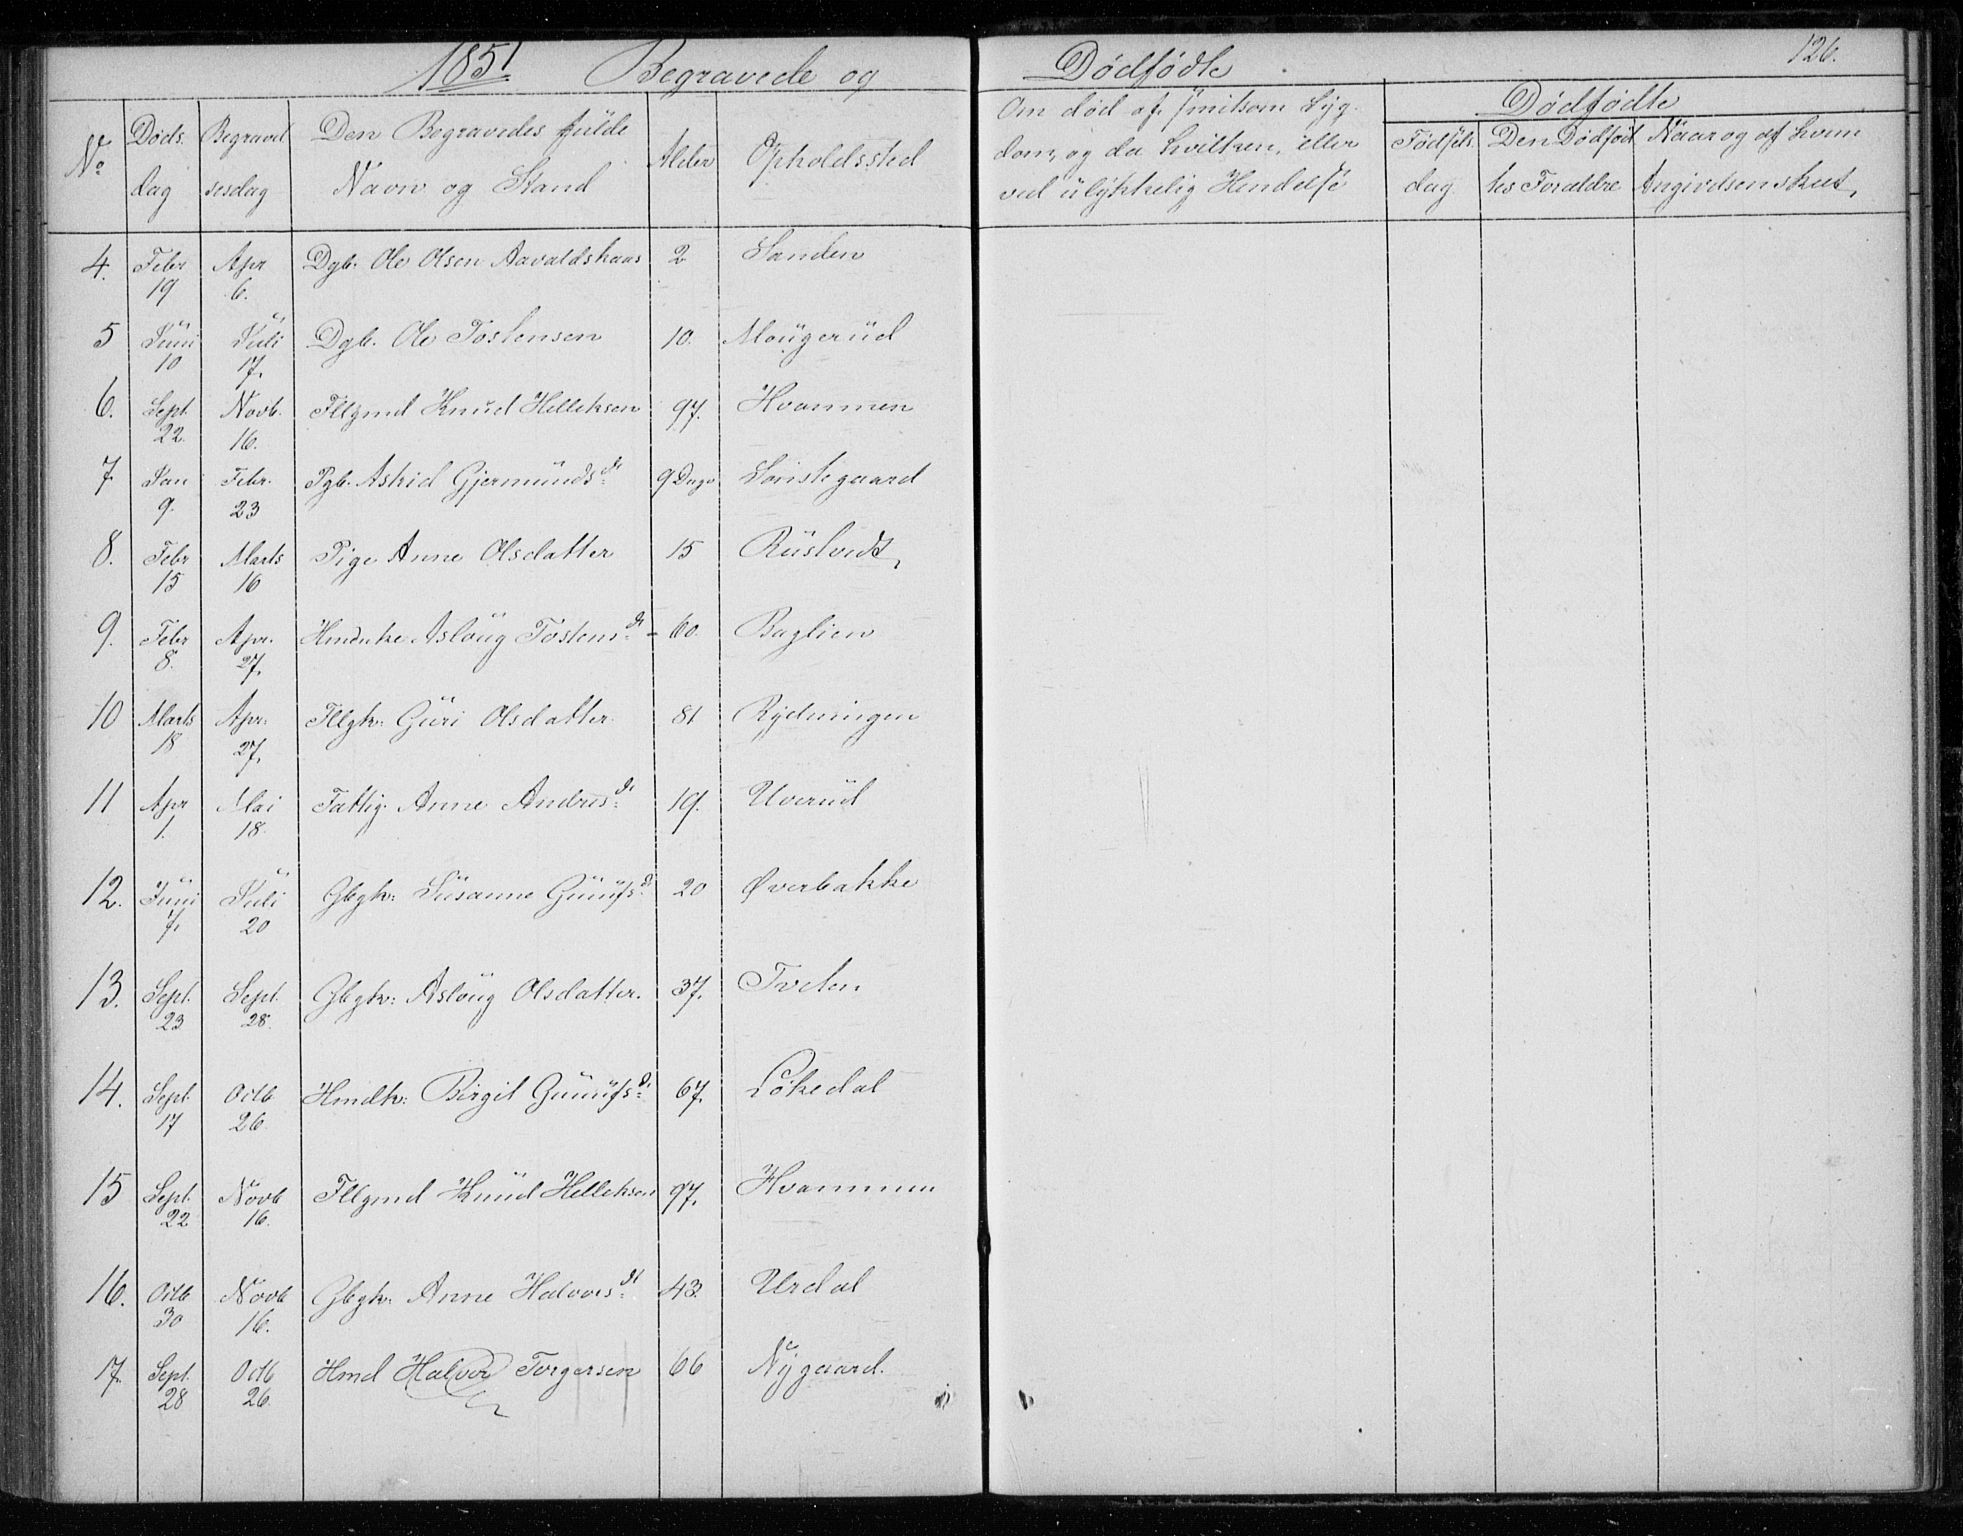 1851 Begravede og Dødfødte 126.
No Døds dag Begravelsesdag Den Begravedes fulde Navn og Stand Alder Opholdssted Om død af smitsom Syg- dom, og da hvilken, eller ved ulykkelig Hendelse
Dødfødte
Fødsels dag Den Dødfødtes Forældre Naar og af hvem Angivelsen skeet,
4. Febr 19 Apr 6. Dgb. Ole Olsen Aavaldshaas 2 Sanden
5 Juni 10 Juli 17. Dgb. Ole Tostensen 10. Mougerud
6. Sept. 22. Novb. 16. Fllgmd Knud Helleksen 97. Hvammen
7. Jan 9. Febr. 23 Pgb. Astrid Gjermunds dr 9 Dage Sønstegaard
8. Febr 15 Marts 16 Pige Anne Olsdatter 15 Rustvedt,
9. Febr 8. Apr. 27. Hmdenke Asloug Tostens dr 60. Baglien
10 Marts 18 Apr. 27. Fllgk: Guri Olsdatter 81 Rydningen
11 Apr 1. Mai 18. Fattig. Anne Andres dr 19. Uverud
12. Juni 7. Juli 20 Gbgk: Susanne Gunufs dr 20 Øverbakke
13. Sept. 23 Sept. 28. Gbgk: Asloug Olsdatter. 37. Tveten
14. Sept. 17 Octb 26. Hmdk: Birgit Gunufs dr 67. Løkedal
15 Sept. 22 Novb 16. Fllgmd Knud Helleksen 97. Hvammen
16. Octb 30 Novb 16. Gbgk: Anne Halvors dr 43. Urdal
17. Sept. 28 Octb 26. Hmd Halvor Torgersen 66 Nygaard.